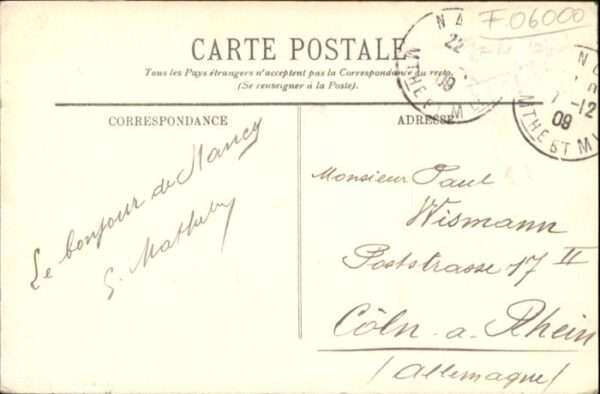 F.06000
CARTE POSTALE
Tous les Pays étrangers n'acceptent pas la Correspondance au recto.
(Se renseigner à la Poste).
CORRESPONDANCE
ADRESSE
22
09
MTHE ET M
-12
09
MTHE ET M
Le bonjour de Nancy
G.
Monsieur Paul
Wismann
Poststrasse 17 II
Cöln-a-Rhein
(Allemagne)